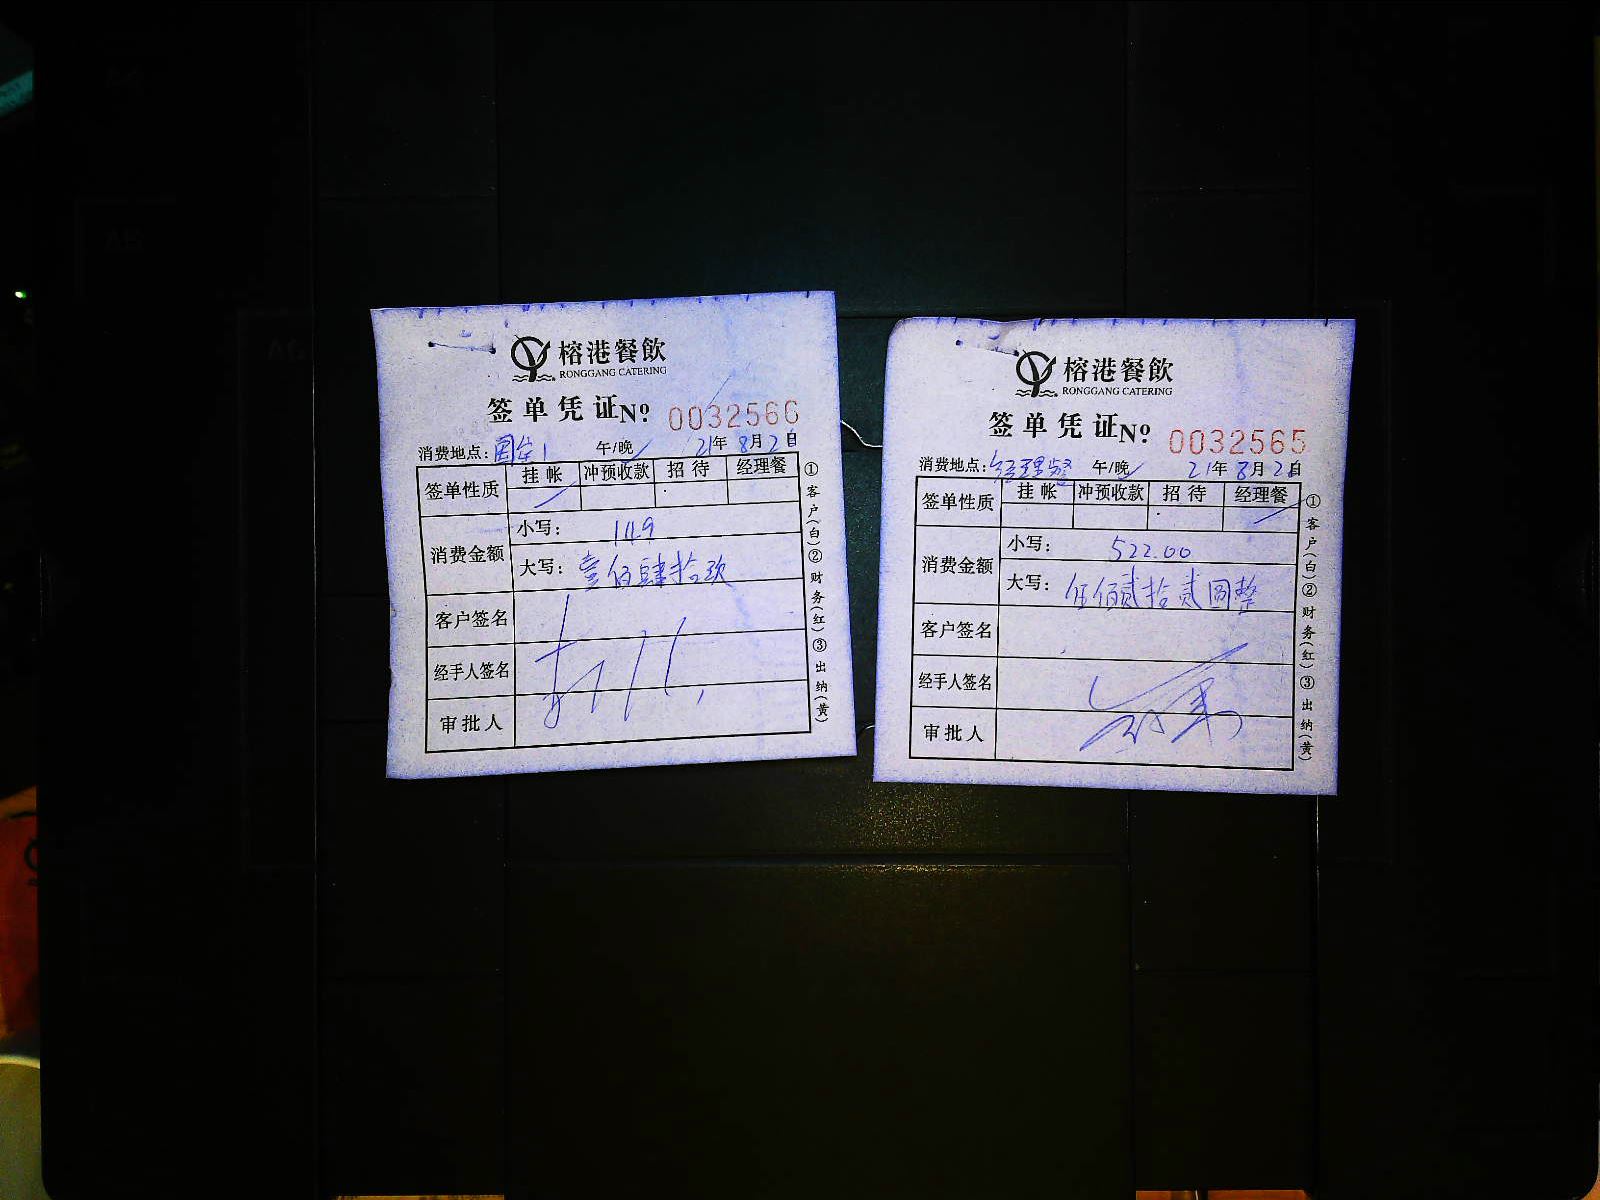 榕港餐飲
RONGGANG CATERING
签单凭证№ 0032566
消费地点: 1 午/晚 21年8月2日
签单性质 挂帐 冲预收款 招待 经理餐
消费金额 小写: 149
大写: 壹佰肆拾玖
客户签名
经手人签名
审批人
①客户(白)②财务(红)③出纳(黄)
榕港餐飲
RONGGANG CATERING
签单凭证№ 0032565
消费地点: 经理餐 午/晚 21年8月2日
签单性质 挂帐 冲预收款 招待 经理餐
消费金额 小写: 522.00
大写: 伍佰贰拾贰圆整
客户签名
经手人签名
审批人
①客户(白)②财务(红)③出纳(黄)